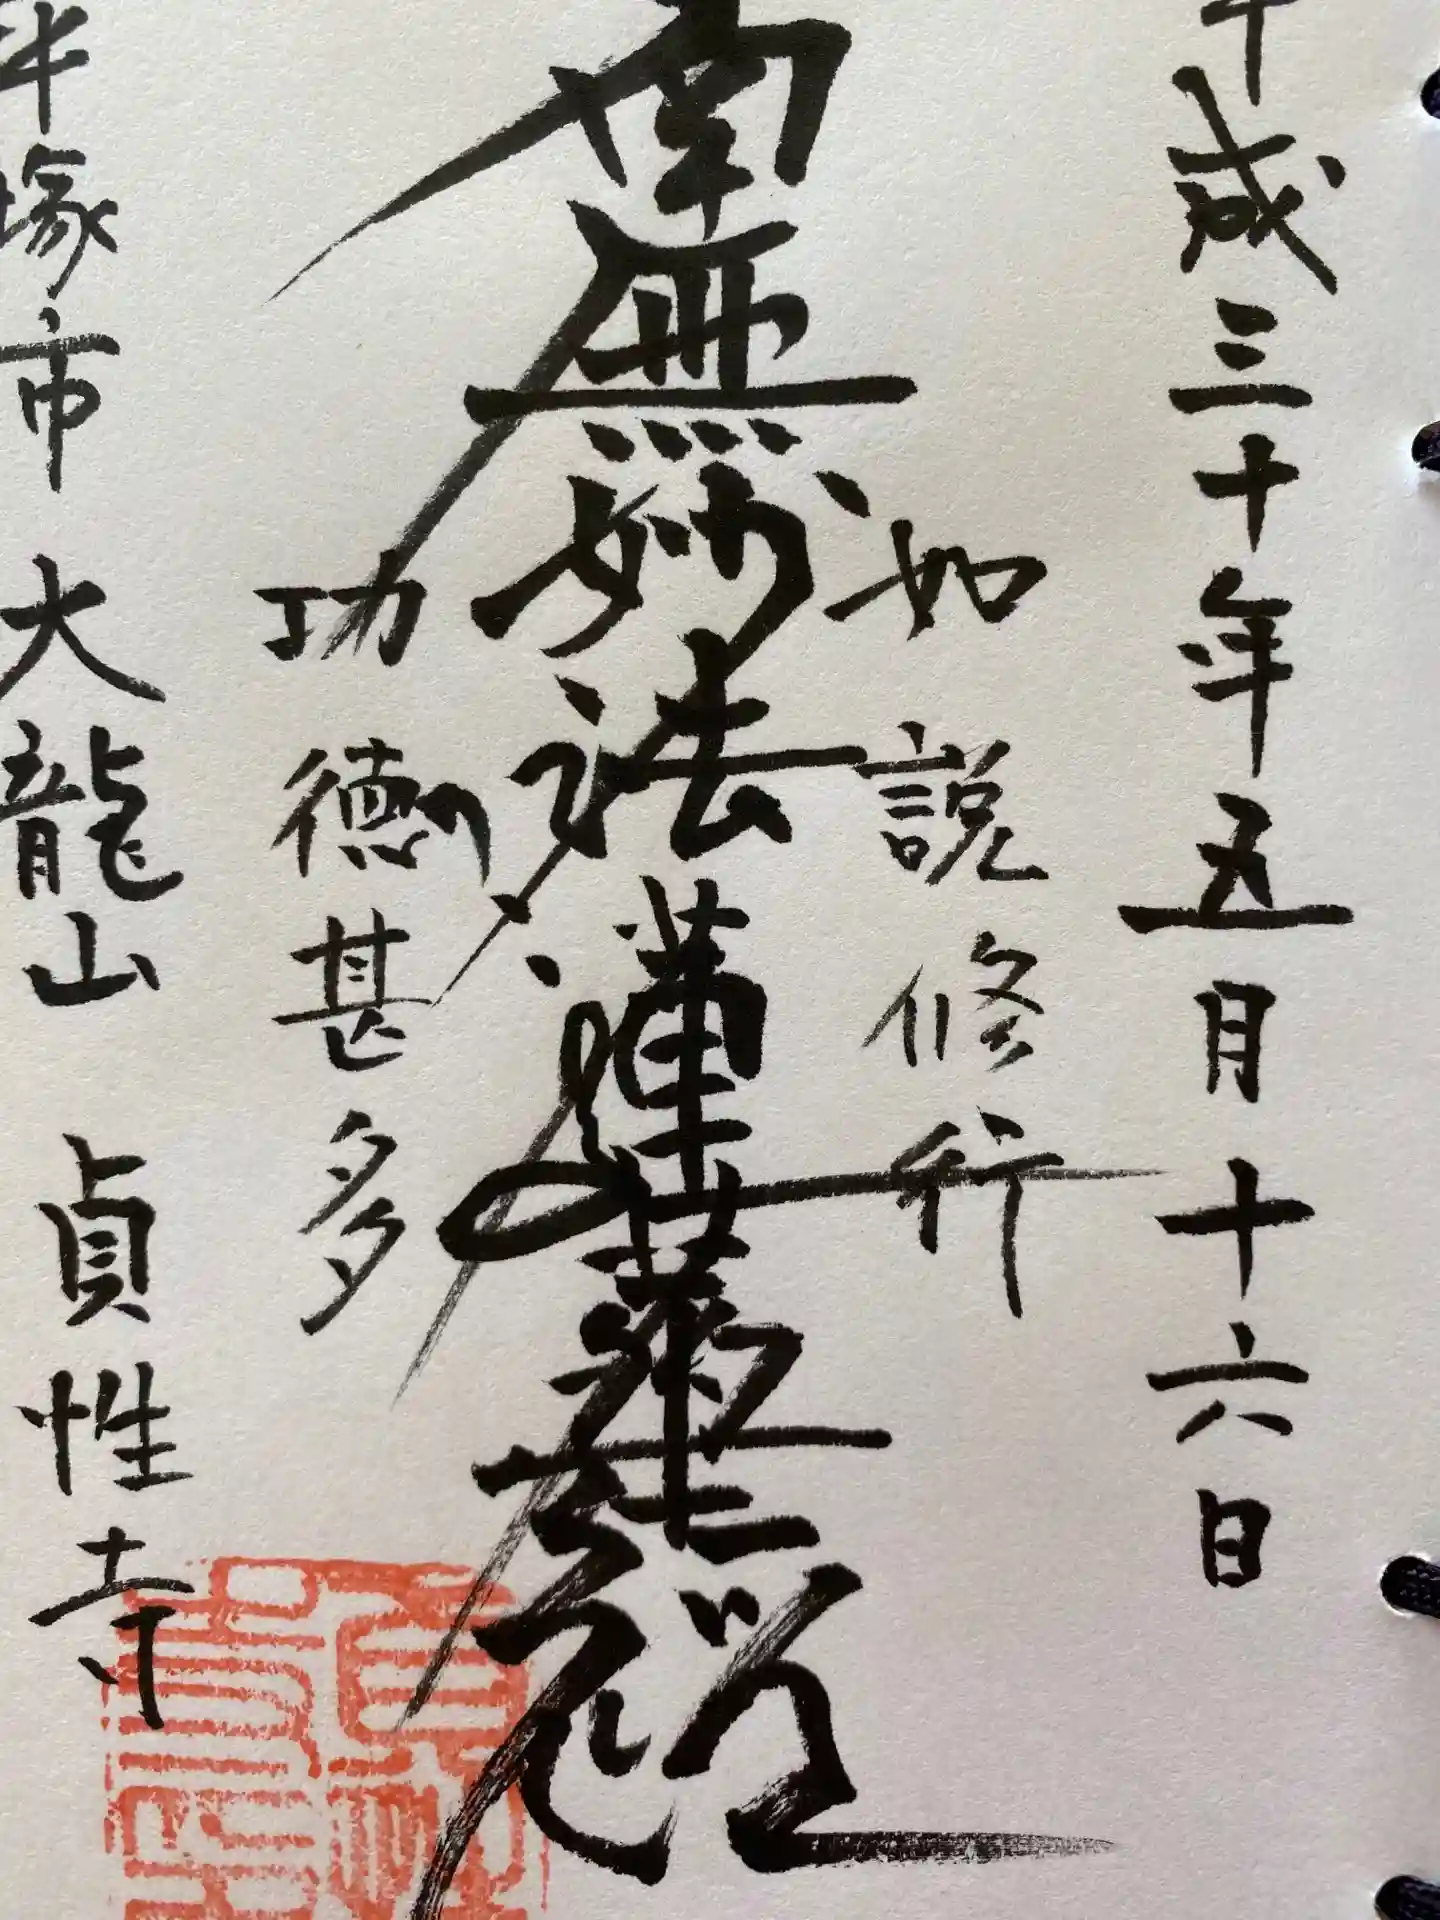 平成三十年五月十六日
如説修行
南無妙法蓮華経
功德甚多
平塚市 大龍山 貞性寺